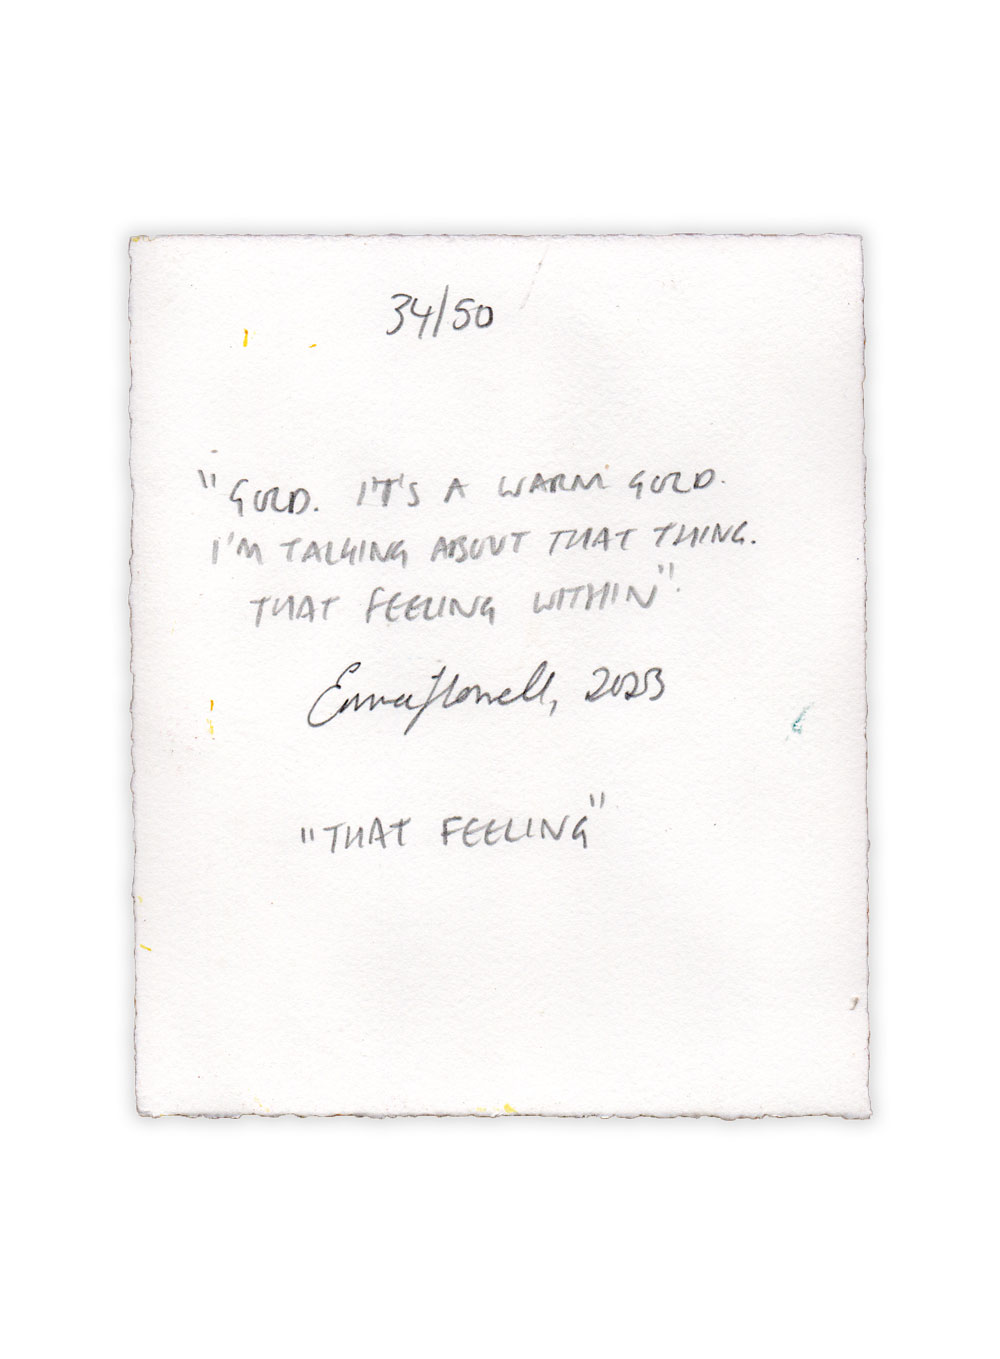 34/50
"GOLD. IT'S A WARM GOLD.
I'M TALKING ABOUT THAT THING.
THAT FEELING WITHIN".
Emma Howell, 2023
"THAT FEELING"